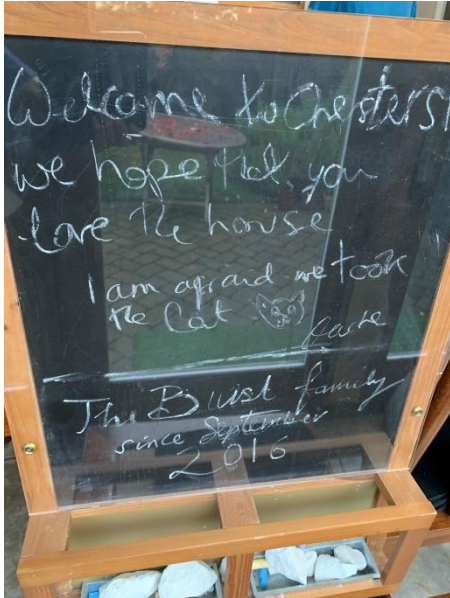 Welcome to Chesters!
we hope that you
love the house
I am afraid we took
the Cat
The Buist family
since September
2016